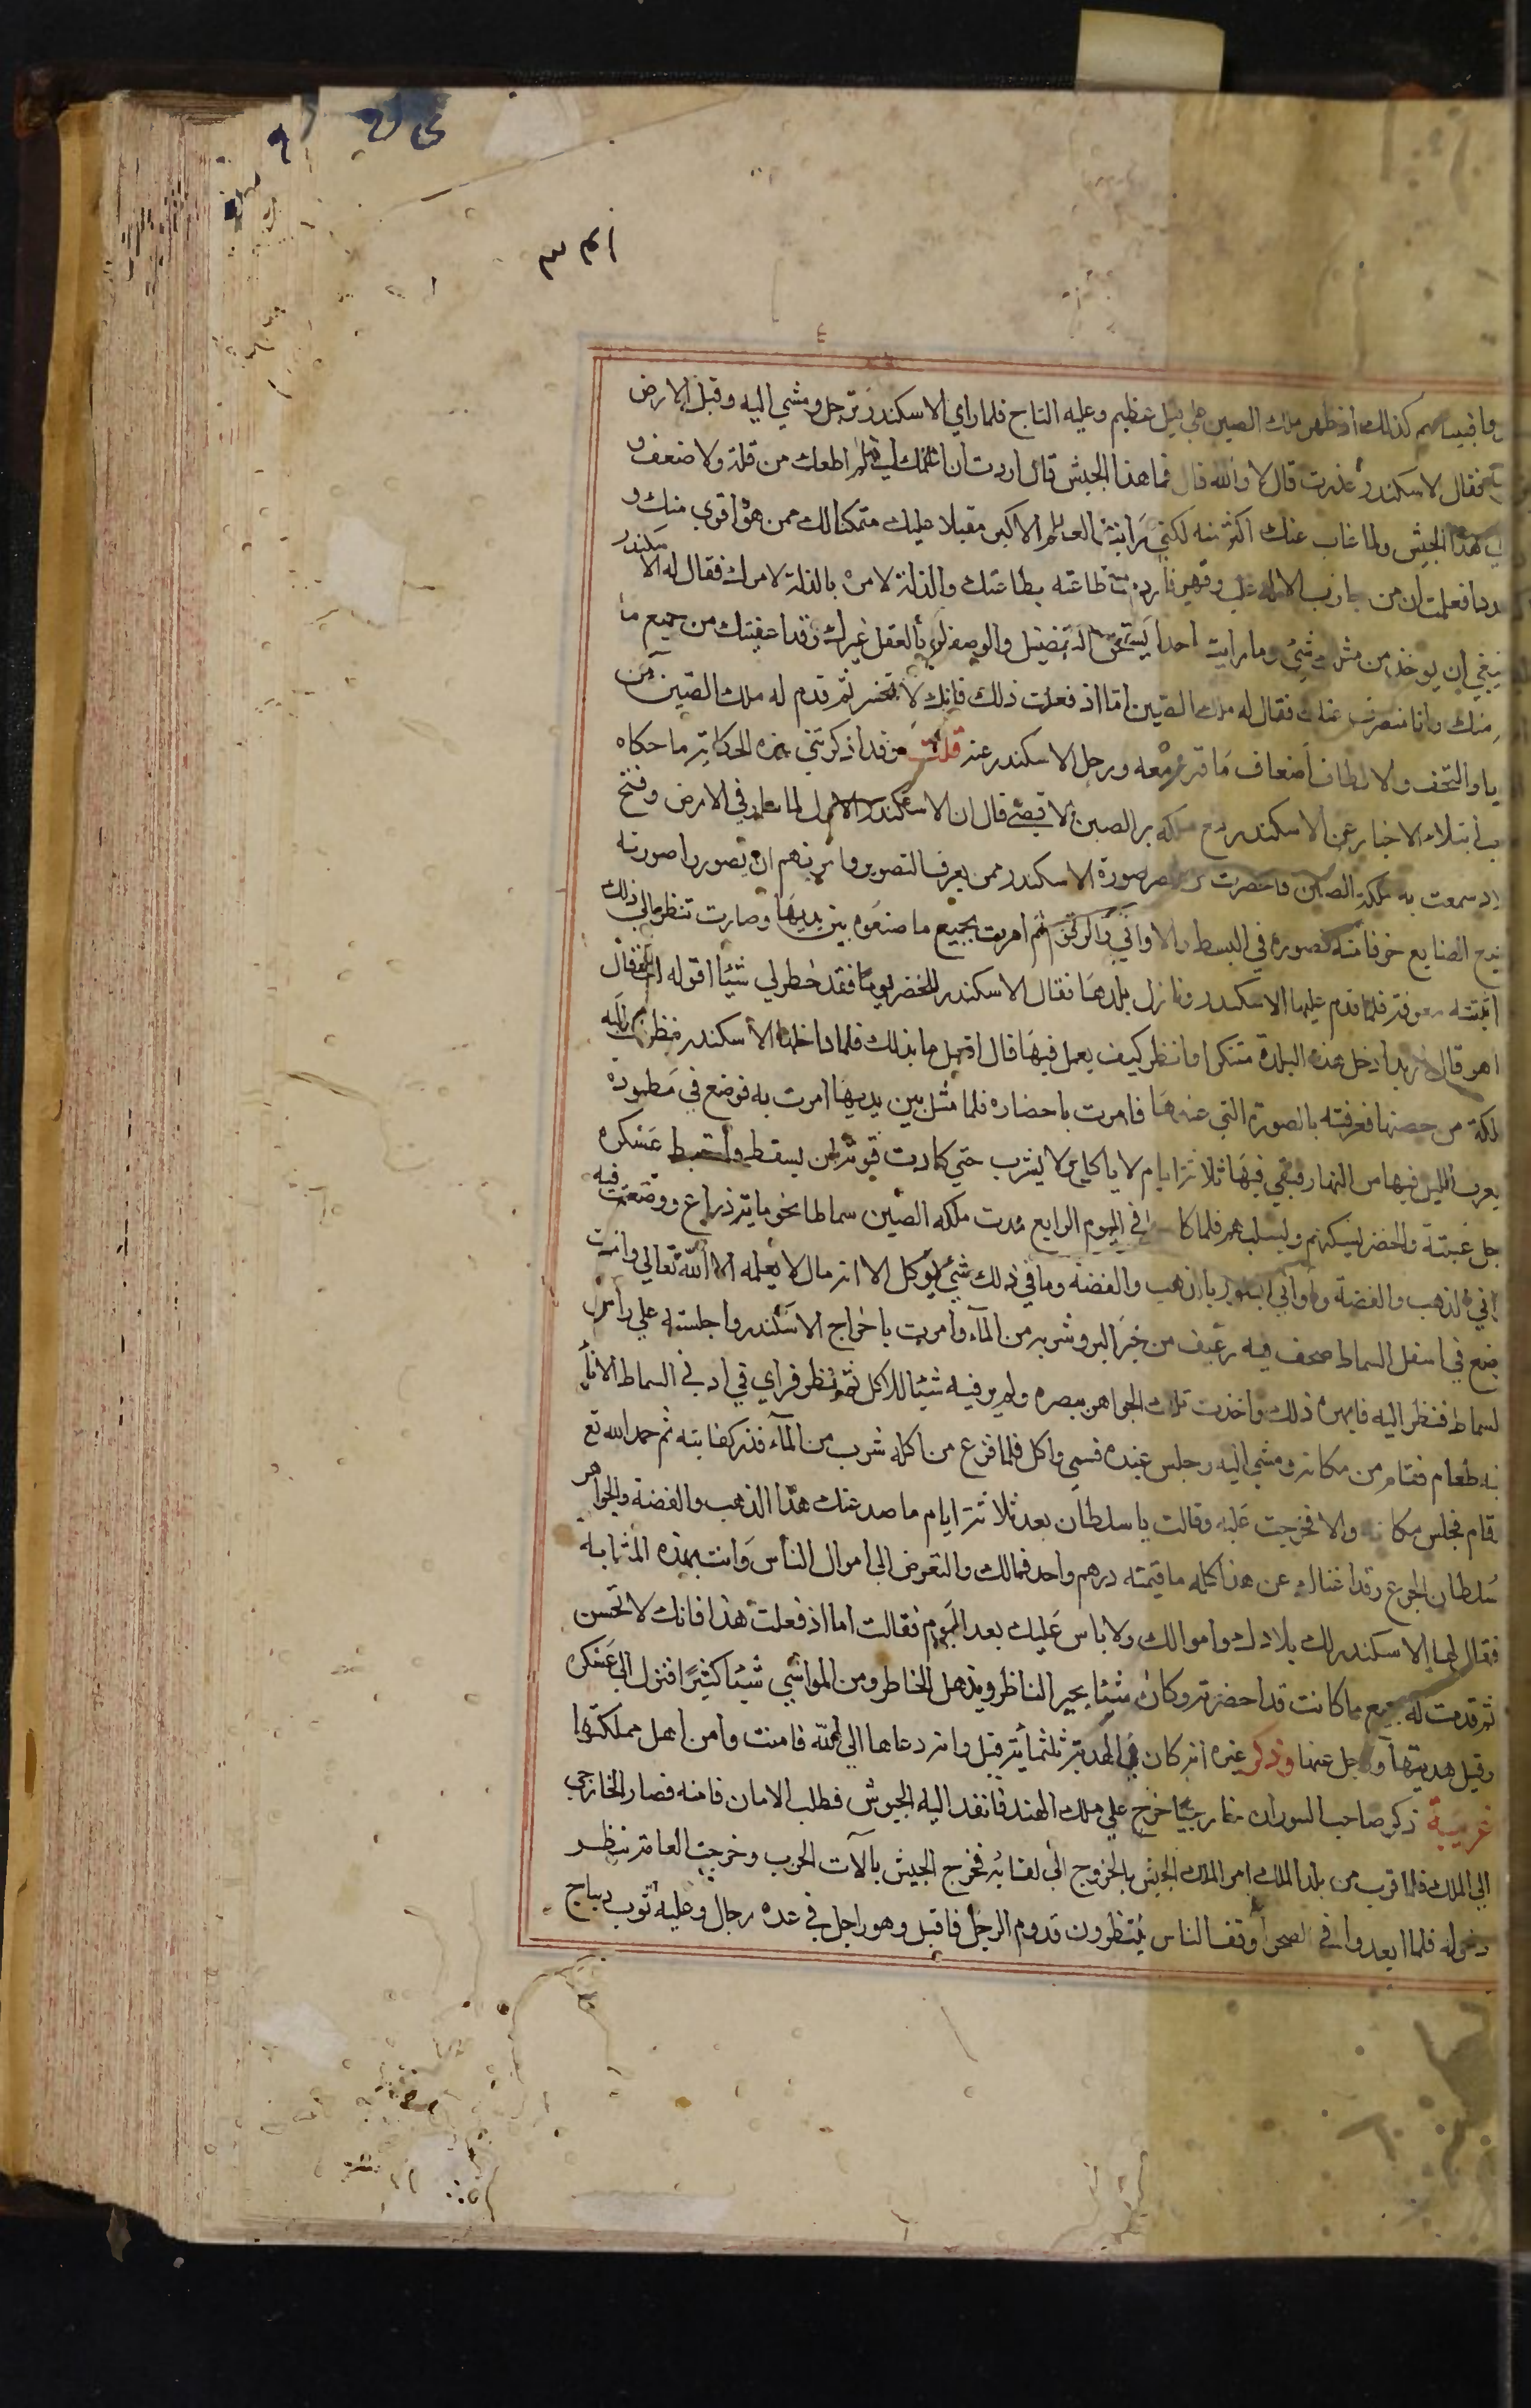 فبينما هم كذلك اذ ظهر ملك الصين على فيل عظيم وعليه التاج فلما راي الاسكندر ترجل ومشي اليه وقبل الارض
فقال الاسكندر غدرت قال لا والله قال فما هذا الجيش قال اردت ان اعلمك اني لم اطعك من قلة ولا ضعف و
هذا الجيش ولما غاب عنك اكثر منه لكني رايت العالم الاكبر مقبلا عليك متمكنا لك ممن هو اقوى منك و
فعلمت ان من حارب الاله غلب وقهر فاردت طاعته بطاعتك والذلة لامره بالذلة لامرك فقال له الاسكندر
ينبغي ان يوخذ من مثلك شئ وما رايت احدا يستحق التفضيل والوصف بالعقل غيرك وقد اعفيتك من جميع ما
منك وانا منصرف عنك فقال له ملك الصين اما اذ فعلت ذلك فانك لا تخسر ثم قدم له ملك الصين من
والتحف والالطاف اضعاف ما قرره معه ورحل الاسكندر عنه قلت وقد اذكرتني هذه الحكاية ما حكاه
ابتلاء الاخيار عن الاسكندر مع ملكه بر الصين الاقصى قال ان الاسكندر الاول لما سار في الارض وفتح
البلاد سمعت به ملكة الصين فاحضرت من ابصر صورة الاسكندر ممن يعرف التصوير وامرتهم ان يصوروا صورته
جميع الصنايع خوفا منه فصوره في البسط والاواني والرقوم ثم امرت بجميع ما صنعوه بين يديها وصارت تنظر الي ذلك
اثبتته معرفة فلما قدم عليها الاسكندر ونازل بلدها فقال الاسكندر للخضر يوما فقد خطر لي شيئا اقوله لك فقال
ما هو قال اريد ادخل هذه البلدة متنكرا وانظر كيف يعمل فيها قال افعل ما بدا لك فلما دخلها الاسكندر نظرت اليه
الملكة من حصنها فعرفته بالصورة التي عندها فامرت باحضاره فلما مثل بين يديها امرت به فوضع في مطمورة
يعرف الليل فيها من النهار فبقي فيها ثلاثة ايام لا ياكل ولا يشرب حتي كادت قوته ان يسقط واختبط عسكره
لاجل غيبته والخضر يسكنهم ويسليهم فلما كان في اليوم الرابع مدت ملكه الصين سماطا نحو ماية ذراع ووضعت فيه
اواني الذهب والفضة واواني البلور بالذهب والفضة وما في ذلك شئ يوكل الا انه مال لا يعلمه الا الله تعالي وامرت
وضع في اسفل السماط صحف فيه رغيف من خبز البر وشربه من الماء وامرت باخراج الاسكندر واجلسته علي راس
السماط فنظر اليه فابهره ذلك واخذت تلك الجواهر ببصره ولم ير فيه شيئا للاكل ثم نظر فراي في ادني السماط الاناء
فيه طعام فقام من مكانه ومشي اليه وجلس عنده فسمي واكل فلما فرغ من اكله شرب من الماء قدر كفايته ثم حمد الله تع
وقام فجلس مكانه والا فخرجت عليه وقالت يا سلطان بعد ثلاثة ايام ما صد عنك هذا الذهب والفضة والجواهر
سلطان الجوع وقد اغناك عن هذا كله ما قيمته درهم واحد فمالك والتعرض الي اموال الناس وانت بهذه المثابه
فقال لها الاسكندر لك بلادك واموالك ولا باس عليك بعد اليوم فقالت اما اذ فعلت هذا فانك لا تخسر
ثم قدمت له جميع ما كانت قد احضرته وكان شيئا يحير الناظر ويذهل الخاطر ومن المواشي شيئا كثيرا فنزل الى عسكره
وقبل هديتها ورحل عنها وذكر غيره انه كان في الهدية ثلثماية فيل وانه دعاها الي الله فامنت وامن اهل مملكتها
غريبة ذكر صاحب السودان خارجيا خرج علي ملك الهند فانفد اليه الجيوش فطلب الامان فامنه فصار الخارجي
الي الملك فلما قرب من بلد الملك امر الملك الجيش بالخروج الى لقائه فخرج الجيش بآلات الحرب وخرجت العامة تنظر
دخوله فلما ابعدوا في الصحرا وقف الناس ينتظرون قدوم الرجل فاقبل وهو راجل في عده رجال وعليه ثوب ديباج